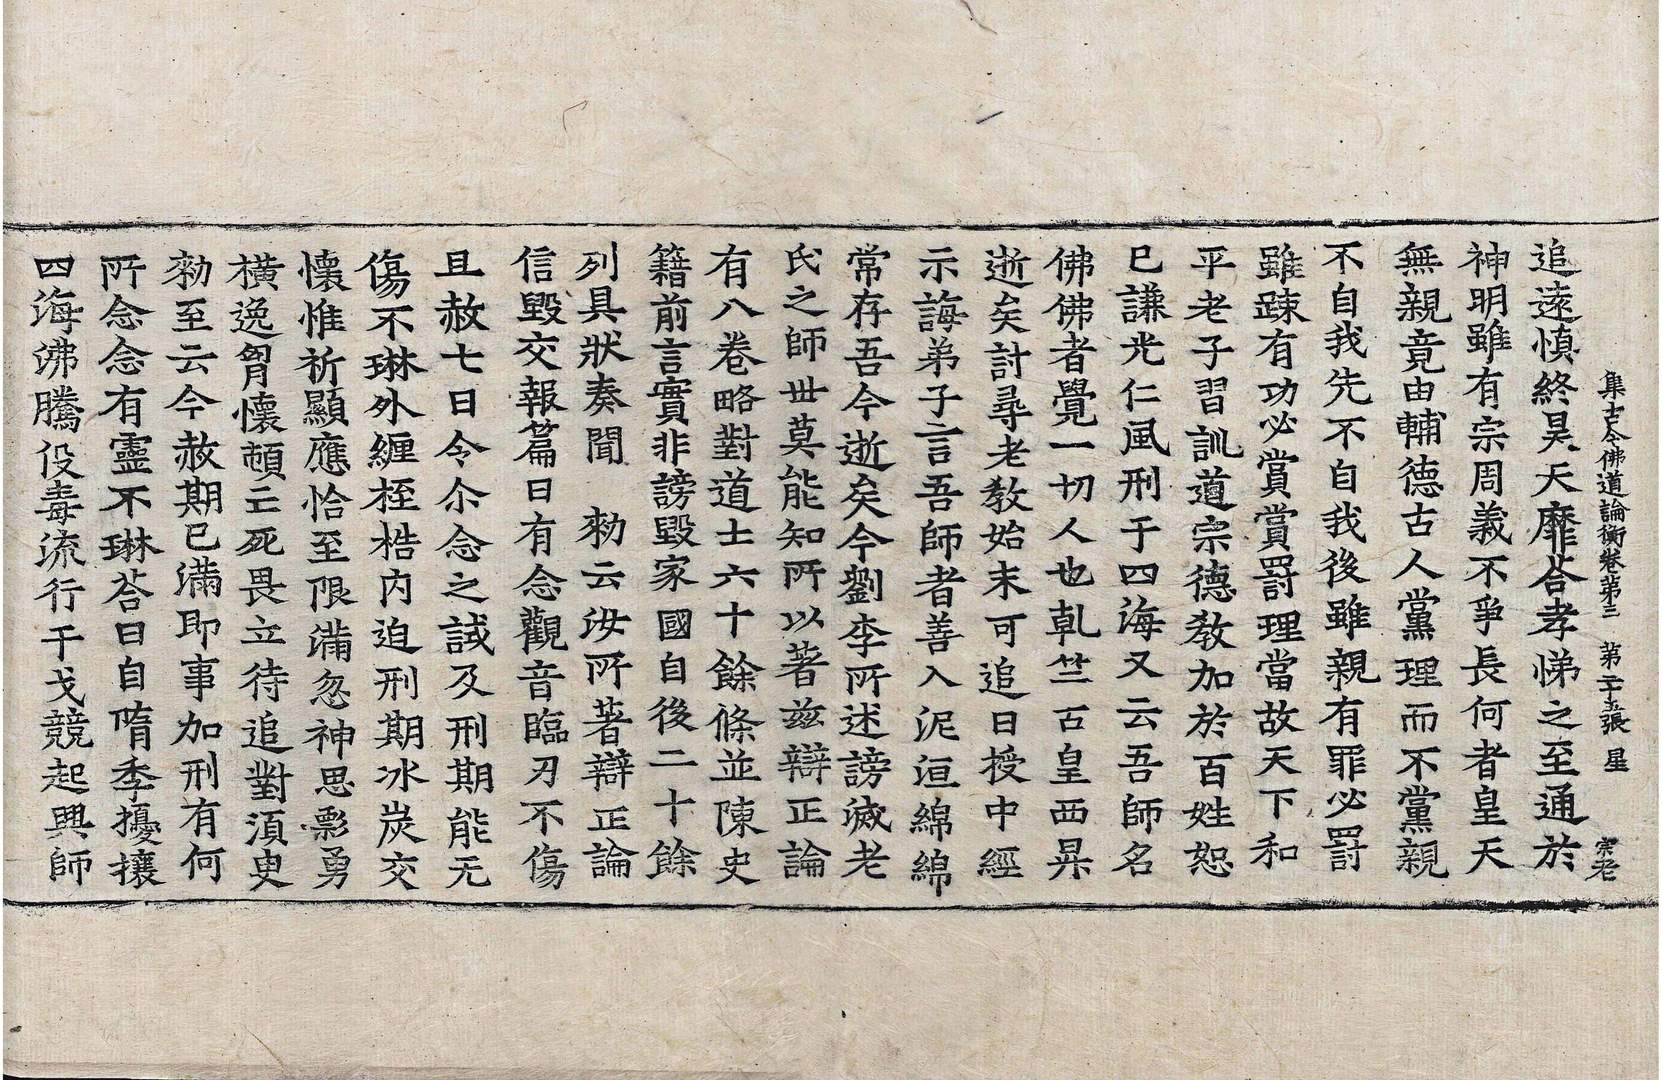 集古今佛道論衡卷第三　第二十五張　星　宗老
追遠慎終昊天靡荅孝悌之至通於
神明雖有宗周義不爭長何者皇天
無親竟由輔德古人黨理而不黨親
不自我先不自我後雖親有罪必罰
雖踈有功必賞賞罰理當故天下和
平老子習訓道宗德教加於百姓恕
已謙光仁風刑于四海又云吾師名
佛佛者覺一切人也乹竺古皇西昇
逝矣討尋老教始末可追日授中經
示誨弟子言吾師者善入泥洹綿綿
常存吾今逝矣今劉李所述謗滅老
氏之師丗莫能知所以著兹辯正論
有八卷略對道士六十餘條並陳史
籍前言實非謗毀家國自後二十餘
列具狀奏聞　勑云汝所著辯正論
信毀交報篇日有念觀音臨刃不傷
且赦七日令尒念之試及刑期能无
傷不琳外纏桎梏内迫刑期冰炭交
懷惟祈顯應恰至限滿忽神思彯勇
横逸胷懷頓亡死畏立待追對湏臾
勑至云今赦期已滿即事加刑有何
所念念有靈不琳荅曰自隋季擾攘
四海沸騰役毒流行干戈競起興師